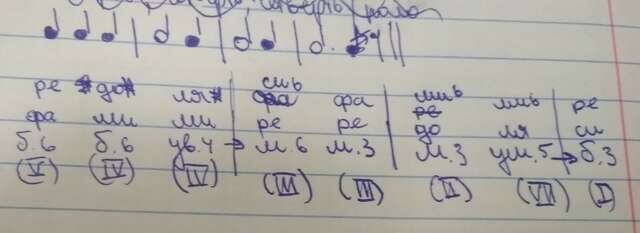 четверть
ре до# ля# сиb фа миb миb ре
фа ми ми ре ре до ля си
б.6 б.6 ув.4 → м.6 м.3 м.3 ум.5 → б.3
(V) (IV) (IV) (III) (III) (II) (VII) (I)